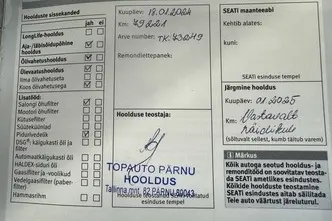 Hoolduste sissekanded
jah ei
LongLife-hooldus
Aja-/läbisõidupõhine hooldus
Õlivahetushooldus
Ülevaatushooldus
Ilma õlivahetuseta
Koos õlivahetusega
Lisatööd:
Salongi õhufilter
Mootori õhufilter
Kütusefilter
Süüteküünlad
Pidurivedelik
DSG®: käigukasti õli ja filter
Automaatkäigukasti õli
HALDEX-siduri õli
Gaasifilter ja -voolikud
Vedelgaasifilter (paberfilter)
Hammasrihm
Kuupäev: 18.01.2024
Km: 49221
Arve nr: TK:43249
Remondiettepanek:
Hoolduse teostaja:
TOPAUTO PÄRNU
HOOLDUS
Tallinna mnt. 82 PÄRNU 80043
SEATi maanteeabi
Kehtib alates:
kuni:
SEATi esinduse tempel
Järgmine hooldus
Kuupäev: 01.2025
Km: Vastavalt
näidikule
(sõltuvalt sellest, kumb täitub varem)
i Märkus
Kõik autoga seotud hooldus- ja
remonditööd on soovitav teostada
SEATi ametlikes esindustes.
Kõikide hoolduste teostamine
SEATi esindustes aitab säilitada
Teie auto väärtust järelturul.